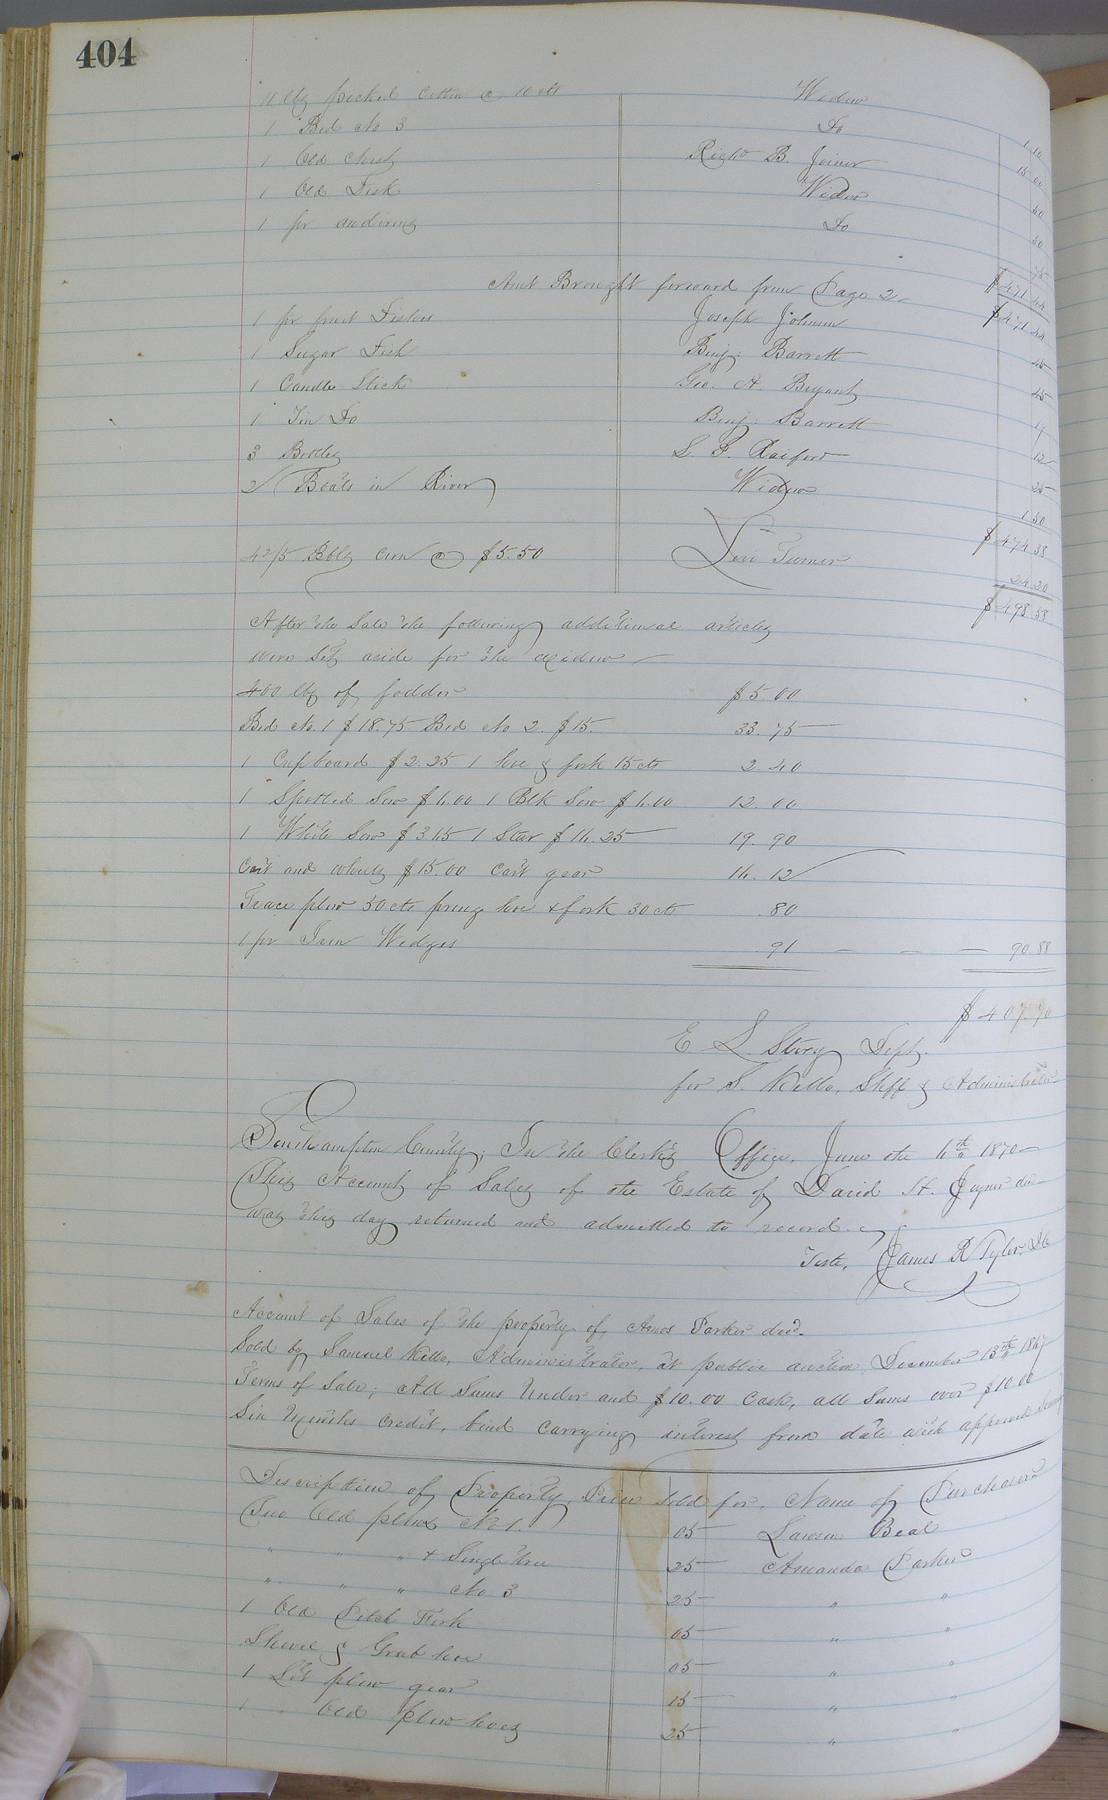 404
11 lbs picked Cotton @ 10 cts Widow 1.10
1 Bed No 3 Do 15.00
1 Old Chest Right B. Joiner 50
1 Old Desk Widow 50
1 pr andirons Do 75
$471.44
Amt Brought forward from Page 2 $471.44
1 pr Joseph Johnson 45
1 Sugar Dish Benj. Barrett 45
1 Candle Stick Geo. A. Bryant
1 Tin Do Benj. Barrett 12
3 Bottles L. R. 25
2 Boats in River Widow 1.50
$474.38
4 2/5 Bbls Corn @ $5.50 Turner 24.20
$498.58
After the Sale the following additional articles
were set aside for the widow
400 lbs of fodder $5.00
Bed No. 1 $18.75 Bed No 2. $15. 33.75
1 Cupboard $2.25 1 hoe & fork 15 cts 2.40
1 Spotted Sow $6.00 1 Blk Sow $6.00 12.00
1 White Sow $3.65 1 Steer $16.25 19.90
Cart and wheels $15.00 Cart gear 16.12
Trace plow 50 cts prong hoe & fork 30 cts .80
1 pr Iron Wedges 91 — — — 90.88
$407.70
E L Story Dept.
for S. Kello, Shff & Administrator
Southampton County; In the Clerk's Office, June the 6th 1870
This Account of Sales of the Estate of David H. Joyner dec
was this day returned and admitted to record.
Teste, James R Tyler, DC
Account of Sales of the property of Amos Parker decd.
Sold by Samuel Kello, Administrator, at public auction December 13th 1867
Terms of Sale; All Sums Under and $10.00 Cash, all Sums over $10.00
Six Months Credit, bond carrying interest from date with approved Security
Description of Property Price Sold for. Name of Purchasers
Two Old plows No 1. 05 Lawson Beal
" " " & Single tree 25 Amanda Parker
" " " No 3 25 " "
1 Old Pitch Fork 05 " "
Shovel & Grub hoe 05 " "
1 Set plow gear 15 " "
1 " Old plow hoes 25 " "